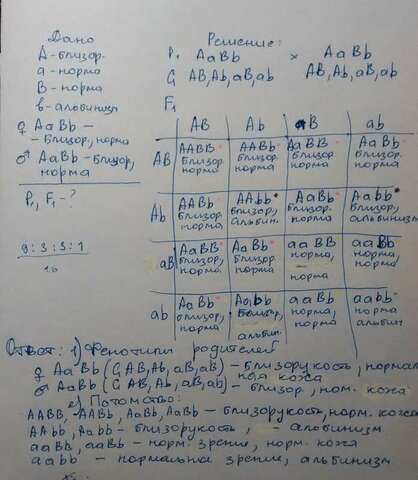 Дано
A - близор.
a - норма
B - норма
b - альбинизм
♀ AaBb -
- близор, норма
♂ AaBb - близор,
норма
P, F₁ - ?
9:3:3:1
16
Решение:
P. AaBb × AaBb
G AB, Ab, aB, ab AB, Ab, aB, ab
F₁
AB Ab aB ab
AB AABB близор. норма AABb близор. норма AaBB близор норма AaBb близор норма
Ab AABb близор норма AAbb близор, альбин. AaBb близор. норма Aabb близор, альбинизм
aB AaBB близор, норма. AaBb близор норма aaBB норма, норма aaBb норма, норма
ab AaBb близор, норма Aabb близор, альбин. aaBb норма, норма aabb норма альбин.
Ответ: 1) Фенотипы родителей
♀ AaBb (G AB, Ab, aB, ab) - близорукость, нормаль
ная кожа
♂ AaBb (G AB, Ab, aB, ab) - близор, норм. кожа
Потомство:
AABB, AABb, AaBB, AaBb - близорукость, норм. кожа
AAbb, Aabb - близорукость, - альбинизм
aaBB, aaBb - норм. зрение, норм. кожа
aabb - нормальное зрение, альбинизм